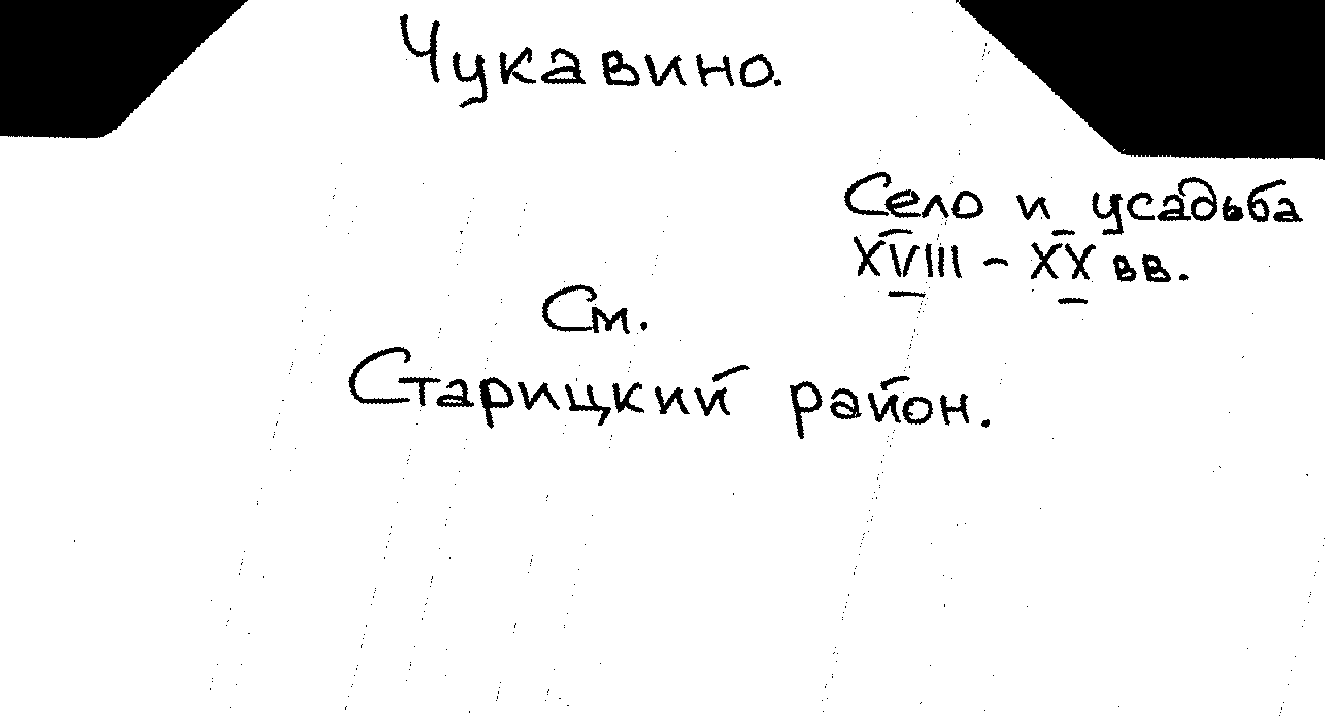 Чукавино.
Село и усадьба
XVIII - XX вв.
См.
Старицкий район.